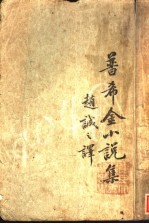 普希金小説集
趙誠之譯